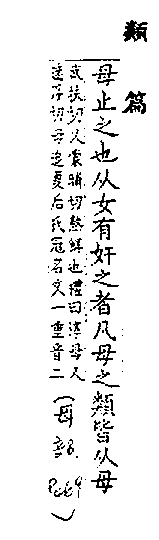 類篇
毋止之也从女有奸之者凡毋之類皆从毋
武扶切又蒙晡切熬餌也禮曰淳毋又
迷浮切毋追夏后氏冠名文一重音二
(毋部. P669)